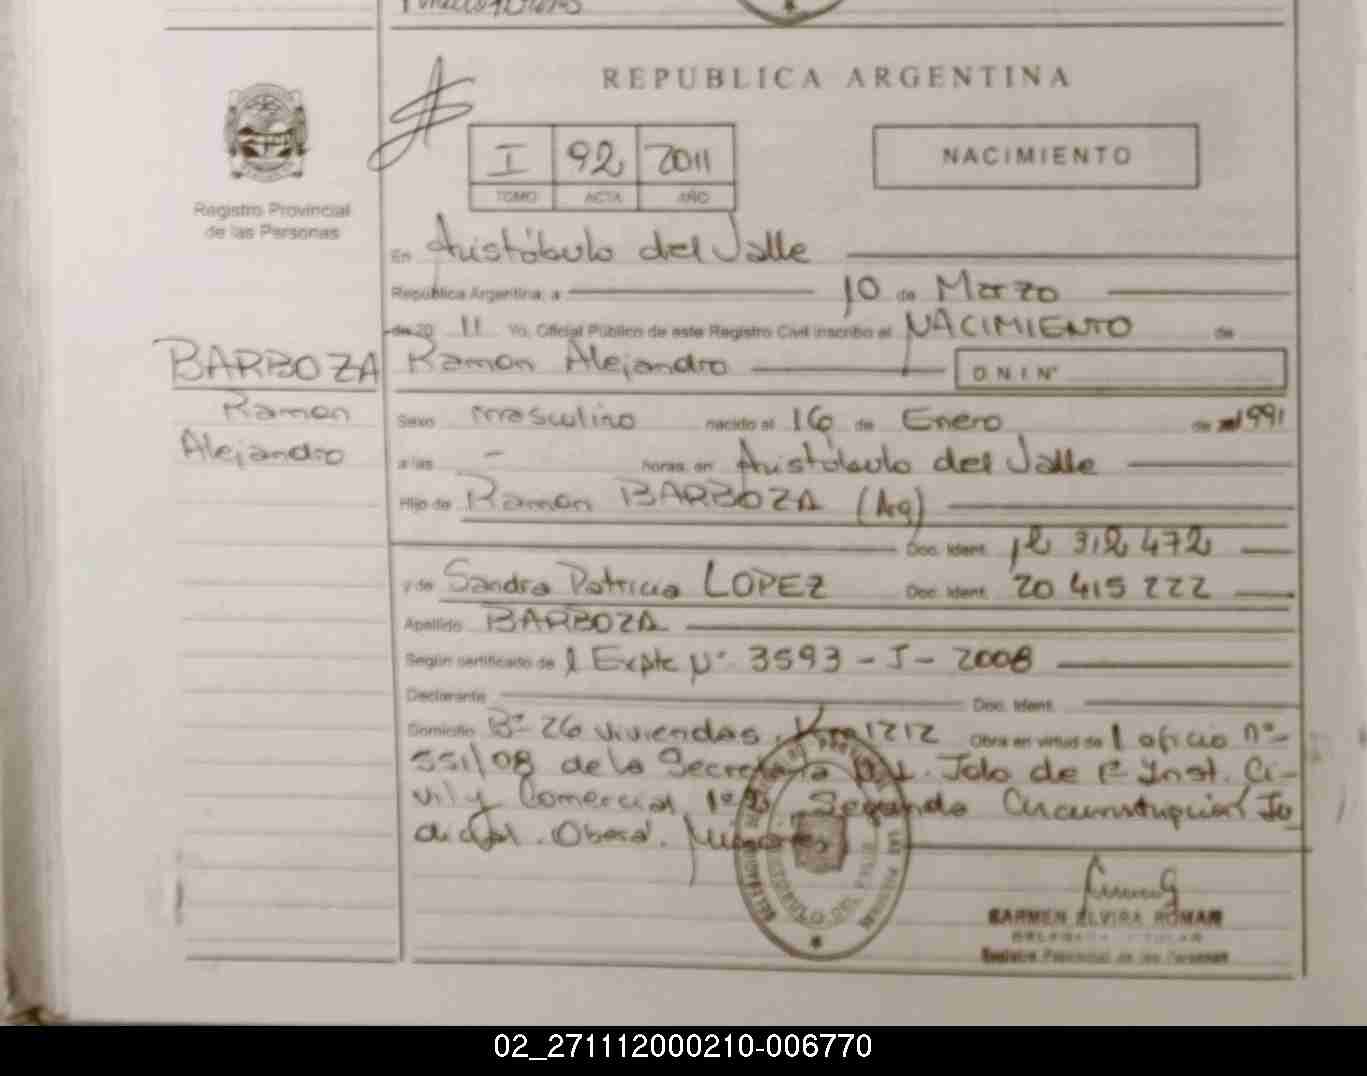 REPUBLICA ARGENTINA
I 92 2011
TOMO ACTA AÑO
NACIMIENTO
Registro Provincial
de las Personas
En Aristóbulo del Valle
República Argentina, a 10 de Marzo
de 20 11 Yo, Oficial Público de este Registro Civil inscribo el NACIMIENTO de
BARBOZA
Ramon
Alejandro
Ramon Alejandro D.N.I Nº
Sexo masculino nacido el 16 de Enero de 1991
a las - horas, en Aristóbulo del Valle
Hijo de Ramon BARBOZA (Arg)
Doc. Ident. 12 312 472
y de Sandra Patricia LOPEZ Doc. Ident. 20 415 222
Apellido BARBOZA
Según certificado de l Expte Nº 3593 - J - 2008
Declarante Doc. Ident.
Domicilio Bº 26 viviendas. Km 1212 Obra en virtud de l oficio nº
551/08 de la Secretaria Jdo de 1º Inst. Ci-
vil y Comercial Segunda Circunscripcion Ju
dicial. Oberá. Misiones
CARMEN ELVIRA ROMAN
DELEGADA TITULAR
Registro Provincial de las Personas
02_271112000210-006770